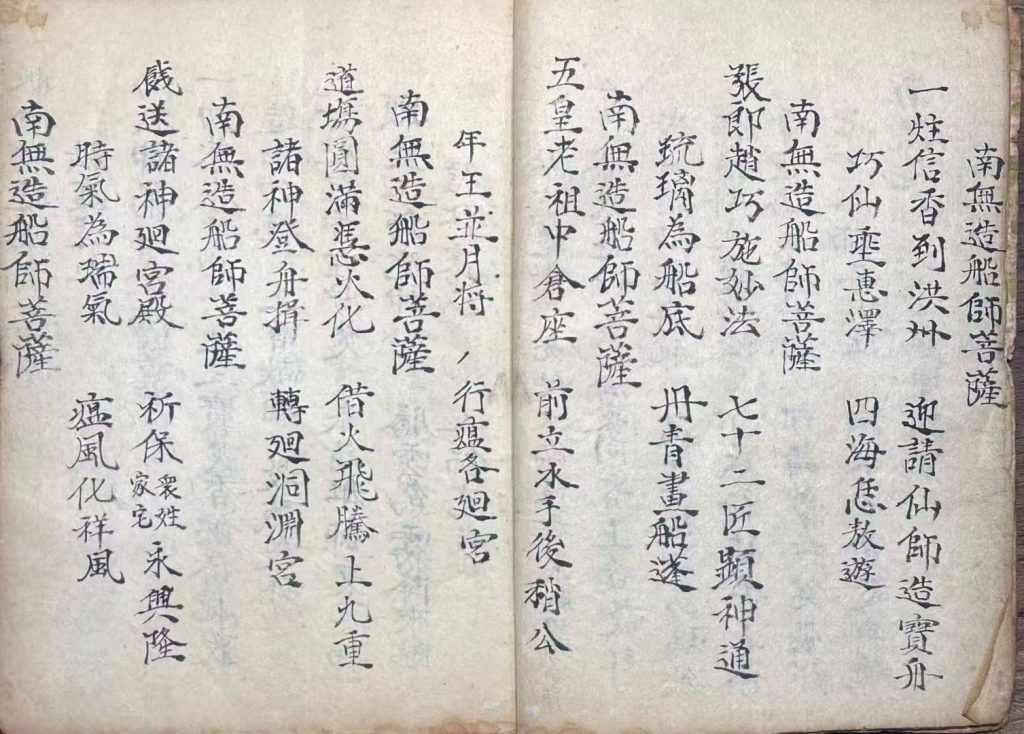 南無造船師菩薩
一炷信香到洪州 迎請仙師造寶舟
巧仙垂惠澤 四海恁敖遊
南無造船師菩薩
張郎趙巧施妙法 七十二匠顕神通
琉璃為船底 丹青畫船篷
南無造船師菩薩
五皇老祖中倉座 前立水手後稍公
年王並月将 行瘟各廻宮
南無造船師菩薩
道塲圓滿憑火化 借火飛騰上九重
諸神登舟揖 轉廻洞淵宮
南無造船師菩薩
餞送諸神廻宮殿 祈保衆姓家宅永興隆
時氣為瑞氣 瘟風化祥風
南無造船師菩薩